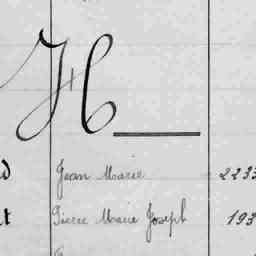 H
Jean Marie 223
Pierre Marie Joseph 193